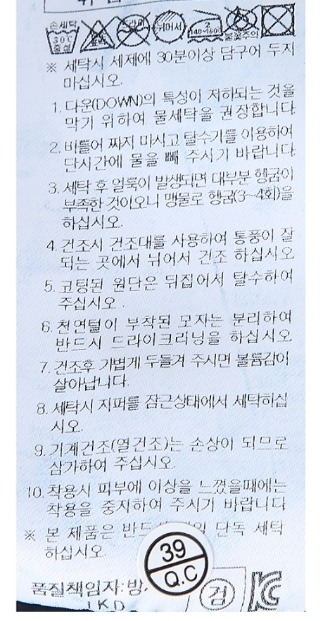 손세탁
30℃
중성
드라이
뉘어서
2
140~160℃
불꽃주의
※ 세탁시 세제에 30분이상 담구어 두지
마십시오.
1. 다운(DOWN)의 특성이 저하되는 것을
막기 위하여 물세탁을 권장합니다
2. 비틀어 짜지 마시고 탈수기를 이용하여
단시간에 물을 빼 주시기 바랍니다.
3. 세탁 후 얼룩이 발생되면 대부분 헹굼이
부족한 것이오니 맹물로 헹굼(3~4회)을
하십시오.
4. 건조시 건조대를 사용하여 통풍이 잘
되는 곳에서 뉘어서 건조 하십시오.
5. 코팅된 원단은 뒤집어서 탈수하여
주십시오 .
6. 천연털이 부착된 모자는 분리하여
반드시 드라이크리닝을 하십시오
7. 건조후 가볍게 두들겨 주시면 볼륨감이
살아납니다.
8. 세탁시 지퍼를 잠근상태에서 세탁하십
시오.
9. 기계건조(열건조)는 손상이 되므로
삼가하여 주십시오.
10. 착용시 피부에 이상을 느꼈을때에는
착용을 중지하여 주시기 바랍니다
※ 본 제품은 반드 단독 세탁
하십시오.
39
Q.C
품질책임자: 방
검